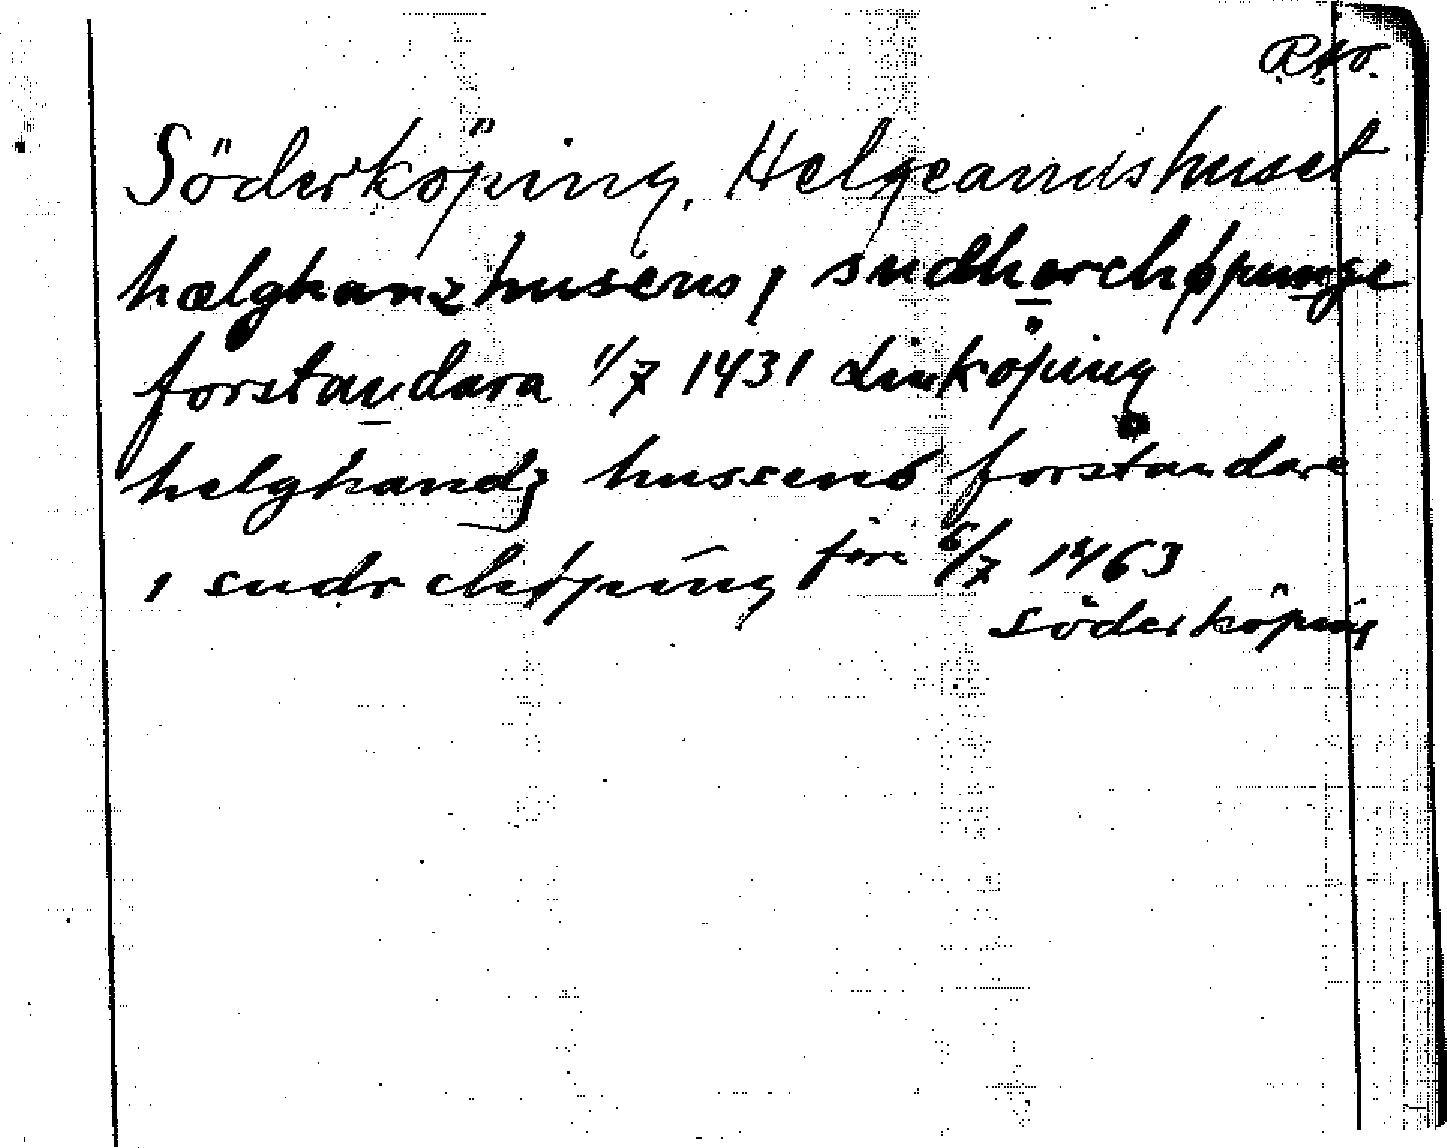 RAö.
Söderköping, Helgeandshuset
hælghanz husens j sudhorchøpunge
forstandara 1/7 1431 Linköping
helghandz hussens forstandare
i sudrchøping före 6/7 1463
Söderköping